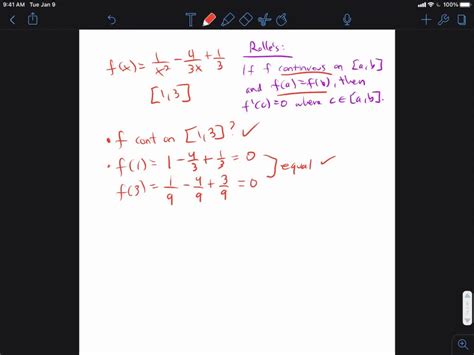 9:41 AM Tue Jan 9
100%
f(x) = 1/x² - 4/3x + 1/3
[1,3]
Rolle's:
If f continuous on [a,b]
and f(a)=f(b), then
f'(c)=0 where c∈[a,b].
• f cont on [1,3]? ✓
• f(1) = 1 - 4/3 + 1/3 = 0
f(3) = 1/9 - 4/9 + 3/9 = 0
equal ✓